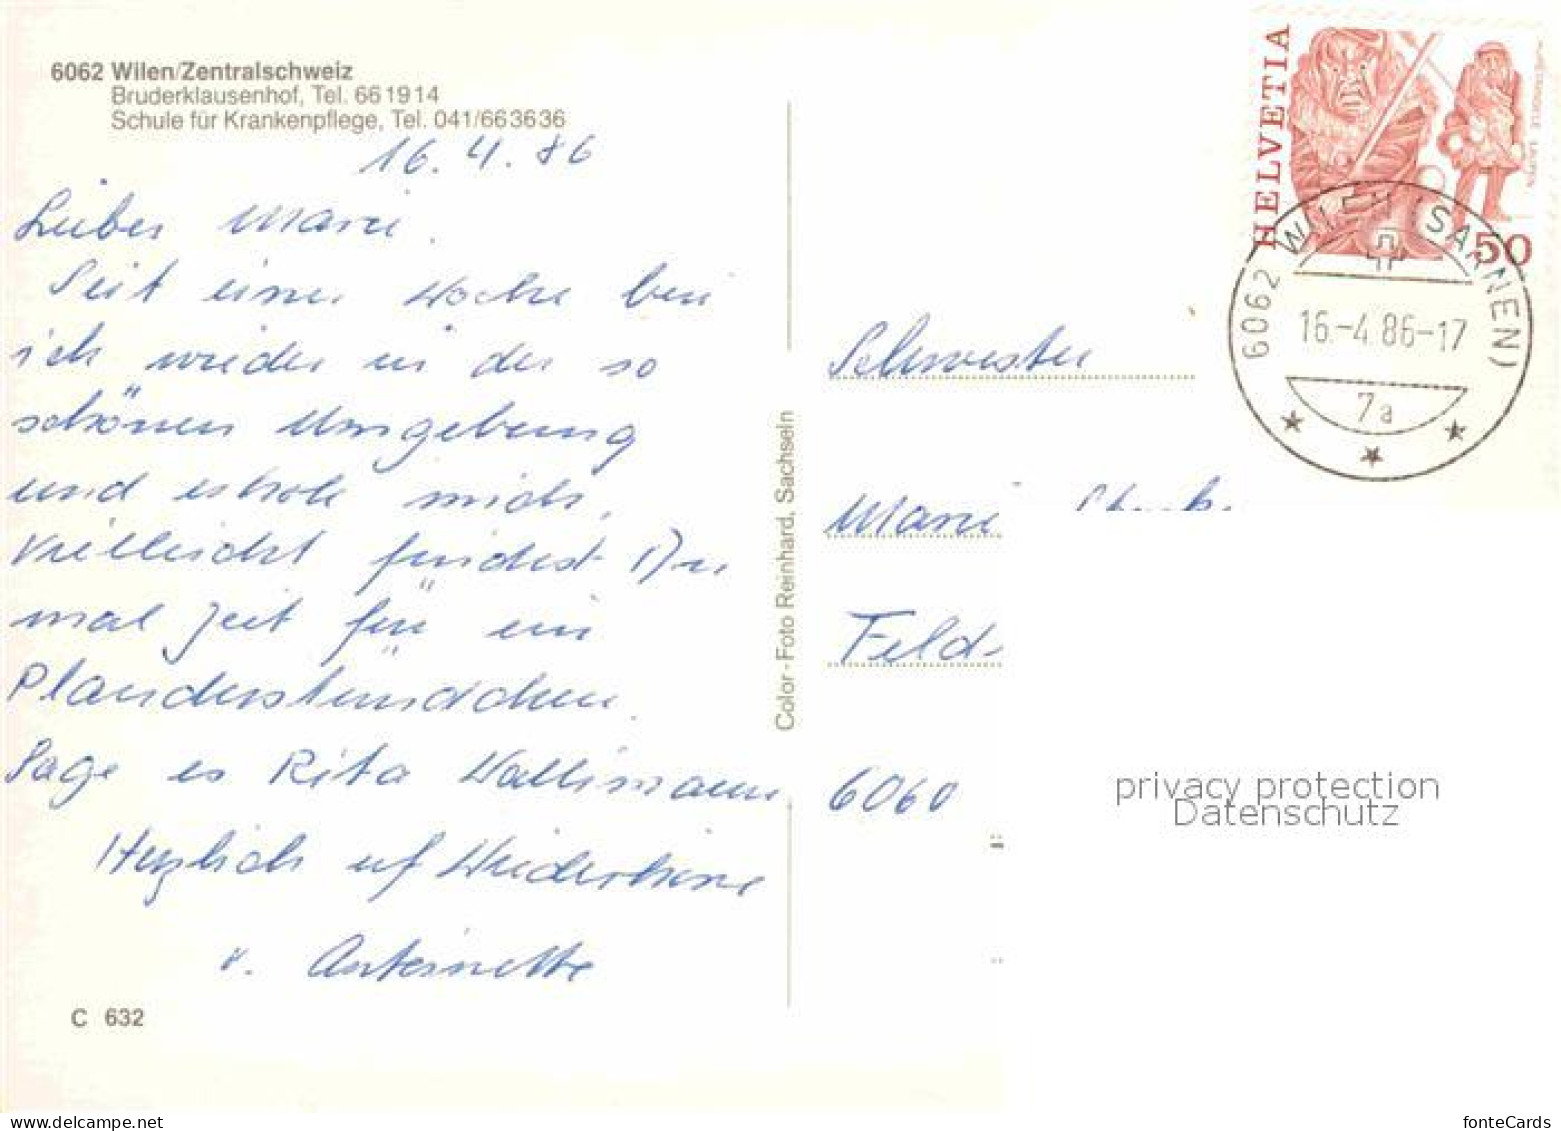 6062 Wilen/Zentralschweiz
Bruderklausenhof, Tel. 661914
Schule für Krankenpflege, Tel. 041/663636
16. 4. 86
Lieber Marie.
Seit einer Woche bin
ich wieder in der so
schönen Umgebung
und erhole mich.
Vielleicht findest Du
mal Zeit für ein
Plauderstündchen.
Sage es Rita Wallimann
Herzlich uf Wiederluege
v. Antoinette
C 632
Color - Foto Reinhard, Sachseln
HELVETIA
50
6062 WILEN (SARNEN)
16.-4.86-17
7a
Schwester
Marie
Feld-
6060
privacy protection
Datenschutz
delcampe.net
fonteCards